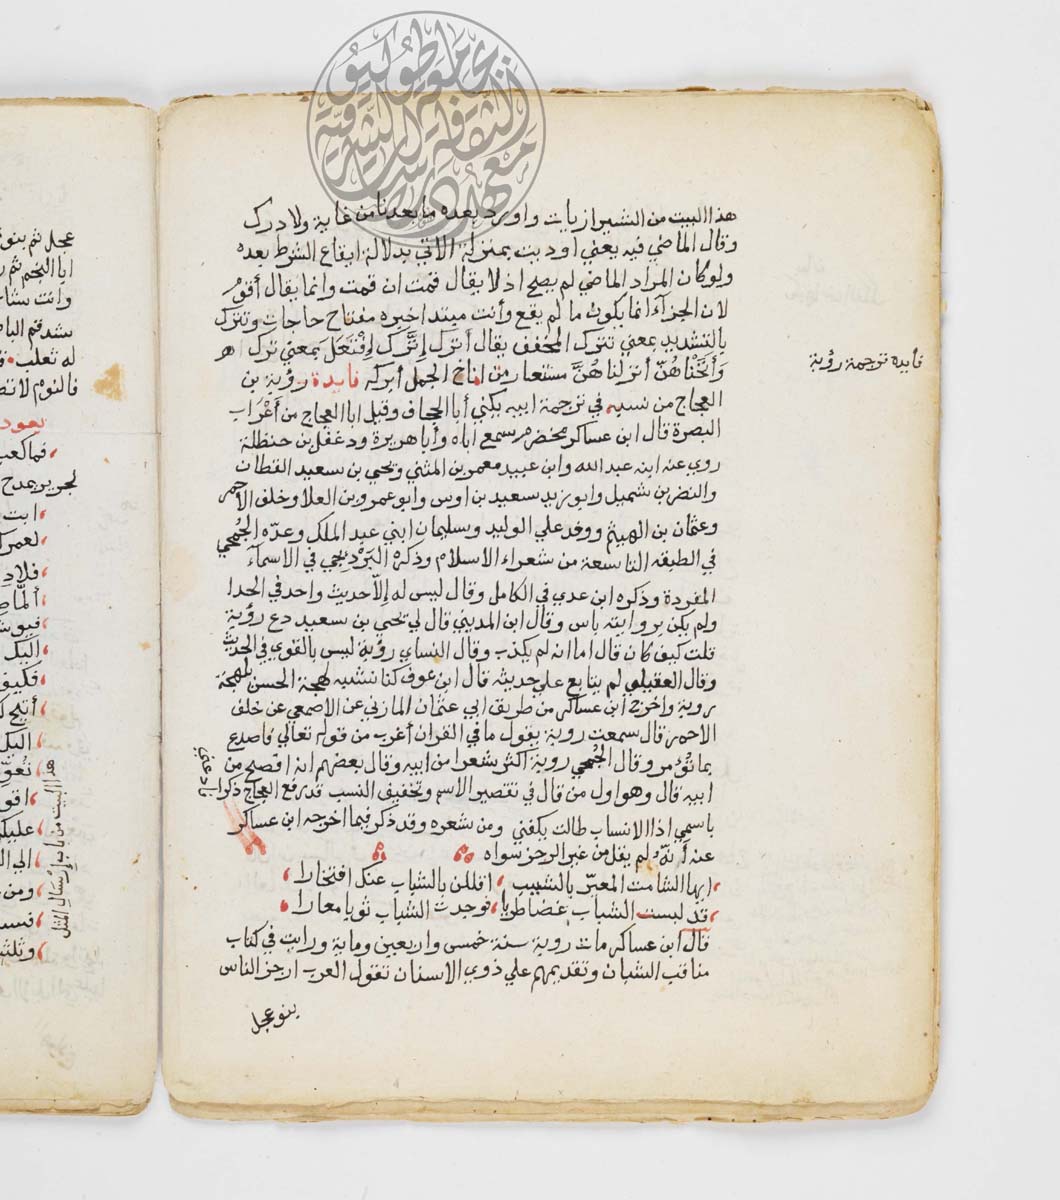 هذا البيت من الشيرازيات واورد بعده ما بعدنا من غاية ولا درك
وقال الماضي فيه يعني اوديت بمنزلة الاتي بدلالة ايقاع الشرط بعده
ولو كان المراد الماضي لم يصح اذ لا يقال قمت ان قمت وانما يقال أقوم
لان الجزآء انما يكون ما لم يقع وأنت مبتدا خبره مفتاح حاجات وتترك
بالتشديد بمعني تترك المخفف يقال أترك إتَّرك إفْتَعَل بمعني ترك اهـ
وَأَنَخْناهُنّ أنزلناهُنَّ مستعار من اناخ الجمل أبركه فايدة رؤبة بن
العجاج من نسبه في ترجمة ابيه يكني أبا الجحاف وقيل ابا العجاج من أعْرَاب
البصرة قال ابن عساكر مخضرم يسمع اباه وأبا هريرة ودغفل بن حنظلة
روي عنه ابنه عبد الله وابن عبيد معمر بن المثني ويحيي بن سعيد القطان
والنضر بن شميل وابو زيد سعيد بن اوس وابو عمرو بن العلا وخلف الاحمر
وعثمان بن الهيثم ووفد علي الوليد وسليمان ابني عبد الملك وعدّه الجُمحي
في الطبقه التاسعة من شعراء الاسلام وذكره البَرْديجي في الاسمآء
المفردة وذكره ابن عدي في الكامل وقال ليس له إلاّ حديث واحد في الحدا
ولم يكن بروايته باس وقال ابن المديني قال لي يحيي بن سعيد دع رؤبة
قلت كيف كان قال اما انه لم يكذب وقال النساي رؤبة ليس بالقوي في الحديث
وقال العقيلي لم يتابع علي حديثه قال ابن عوف كنا نشبه لهجة الحسن بلهجة
روبة واخرج ابن عساكر من طريق ابي عثمان المازني عن الاصمعي عن خلف
الاحمر قال سمعت روبة يقول ما في القران أغرب من قوله تعالي فاصدع
بما تؤمر وقال الجُمحي روبة اكثر شعرا من ابيه وقال بعضهم انه افصح من
ابيه قال وهو اول من قال في تقصير الاسم وتخفيف النسب قد رفع العجاج ذكرا
فادعني
باسمي اذا الانساب طالت يكفني ومن شعره وقد ذكر فيما اخرجه ابن عساكر
عنه أنهُ لم يقل من غير الرجز سواه
ايها الشامت المعيّر بالشيب اقللن بالشباب عنك افتخارا
قد لبست الشباب غضا طريا فوجدت الشباب ثوبا معارا
قال ابن عساكر مات روبة سنة خمس واربعين وماية ورايت في كتاب
مناقب الشبان وتقديمهم علي ذوي الاسنان تقول العرب ارجز الناس
بنو عجل
فايده ترجمة رؤبة
عجل ثم بنو
ابا النجم ثم
له ثعلب
فالنوم لا
يعود
فما كعب
لجرير يمدح
هذا البيت من باب إرْسَال المثل
معهد دراسات الثقافة الشرقية جامعة طوكيو